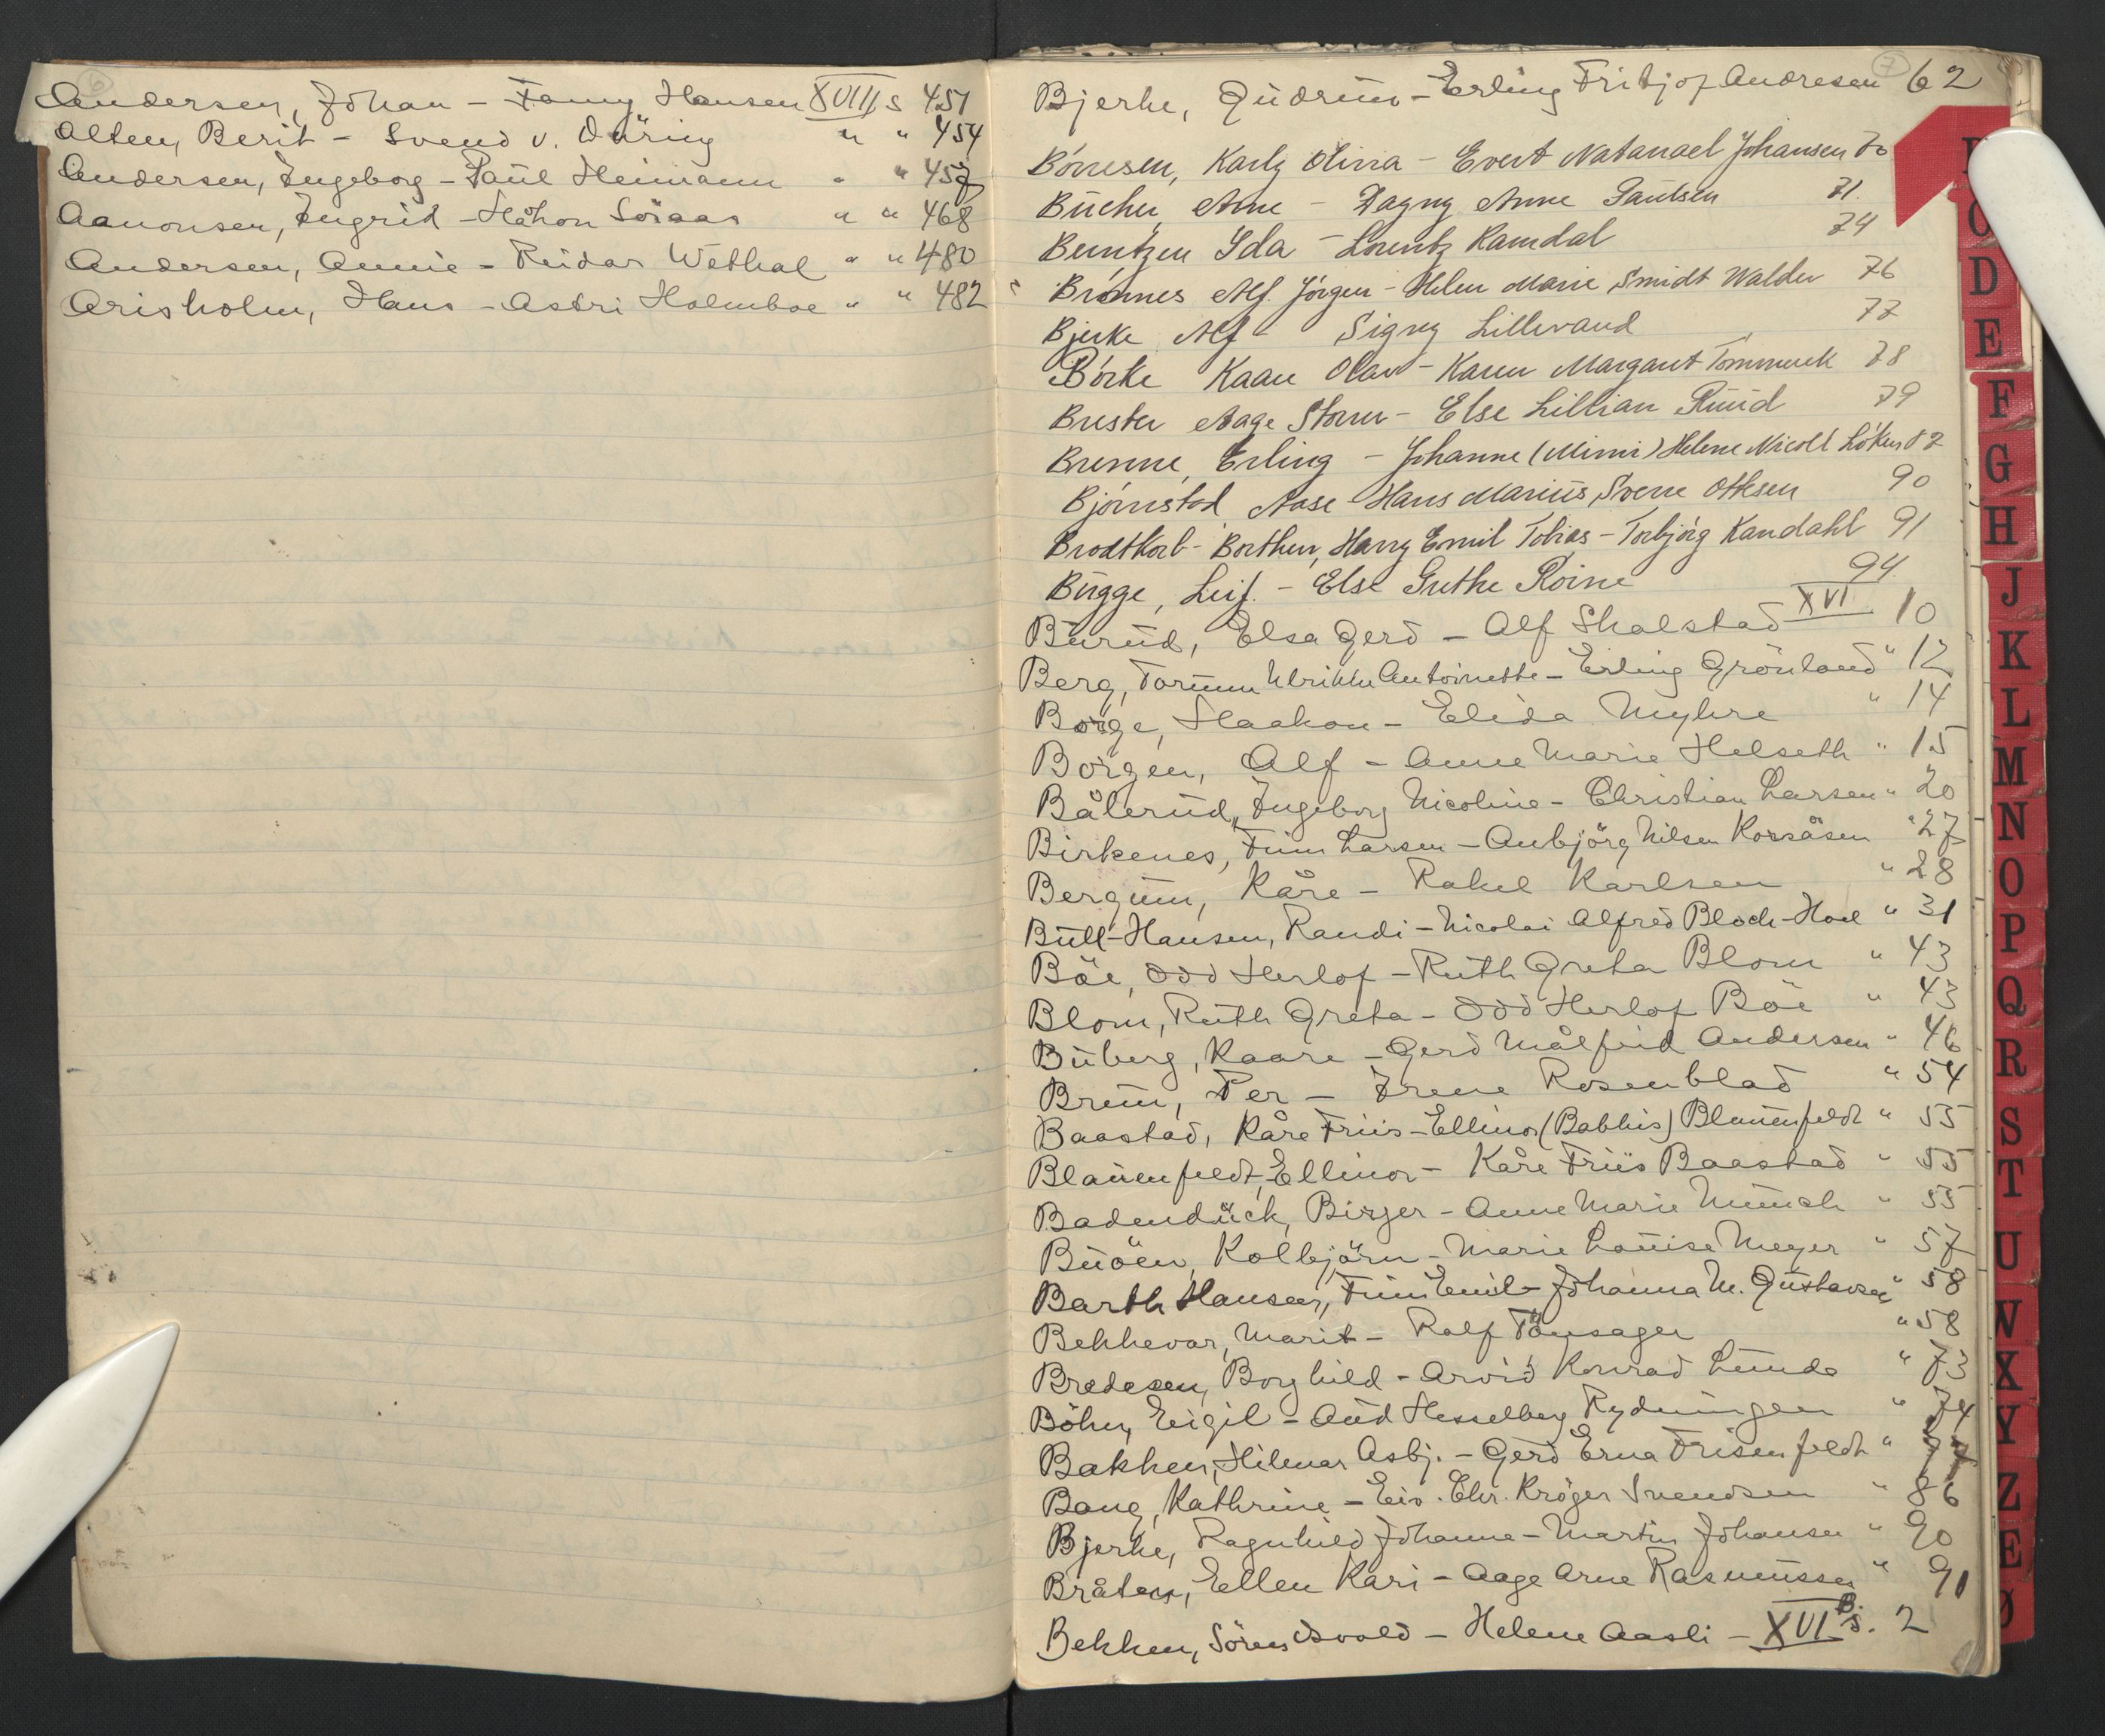 6
Andersen, Johan - Fanny Hansen XVIII s 451
Alten, Berit - Svend v. Düring " " 454
Andersen, Ingeborg - Paul Heimann " " 457
Aanonsen, Ingrid - Håkon Soraas " " 468
Andersen, Annie - Reidar Wethal " " 480
Arisholm, Hans - Astri Holmboe " " 482
7
Bjerke, Gudrun - Erling Fritjof Andresen 62
Börresen, Karly Olivia - Evert Natanael Johansen 70
Bücher, Arne - Dagny Anne Paulsen 71.
Berntzen Ida - Lorentz Ramdal 74
Brönnes Alf. Jörgen - Helen Marie Smidt Walder 76
Bjerke Alf - Signy Lillevand 77
Börke Kaare Olav - Karen Margaret Tommerek 78
Brester Aage Storm - Else Lillian Ruud 79
Brenne, Erling - Johanne (Mimi) Helene Nicoll Löken 82
Björnstad Aase - Hans Marius Sverre Ottesen 90
Brodtkorb-Borthen, Harry Emil Tobias - Torbjörg Kandahl 91
Bugge, Leif. - Else Grethe Roine 94
Burud, Elsa Gerd - Alf Skalstad XVI 10
Berg, Torunn Ulrikke Antoinette - Erling Grönland " 12
Borge, Haakon - Elida Myhre " 14
Borgen, Alf - Anne Marie Helseth " 15
Bålerud, Ingeborg Nicoline - Christian Larsen " 20
Birkenes, Finn Larsen - Anbjörg Nilsen Korsåsen " 27
Bergum, Kåre - Rakel Karlsen " 28
Bull-Hansen, Randi - Nicolai Alfred Bloch-Hoel " 31
Böe, Odd Herlof - Ruth Greta Blom " 43
Blom, Ruth Greta - Odd Herlof Böe " 43
Buberg, Kaare - Gerd Målfrid Andersen " 46
Brun, Per - Irene Rosenblad " 54
Baastad, Kåre Friis - Ellinor (Babbis) Blauenfeldt " 55
Blauenfeldt, Ellinor - Kåre Friis Baastad " 55
Badendück, Birger - Anne Marie Munch " 55
Buöen, Kolbjörn - Marie Louise Meyer " 57
Barth Hansen, Finn Emil - Johanna M. Gustavsen " 58
Bekkevar, Marit - Rolf Tönsager " 58
Bredesen, Borghild - Arvid Konrad Lunde " 73
Böhn, Eigil - Aud Hesselberg Rydningen " 74
Bakken, Hilmar Asbj. - Gerd Erna Frisenfeldt " 77
Bang, Kathrine - Eiv. Chr. Kröger Svendsen " 86
Bjerke, Ragnhild Johanne - Martin Johansen " 90
Bråten, Ellen Kari - Aage Arne Rasmussen " 91
Bekken, Sören Osvald - Helene Aasli - XVI B. s. 2
D
E
F
G
H
J
K
L
M
N
O
P
Q
R
S
T
U
W
X
Y
Z
E
Ø